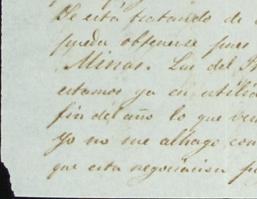 Se está tratando de
pueda obtenerse pues
Minas. Las del
estamos ya en utili
fin del año lo que ven
Yo no me alhago con
que esta negociacion p